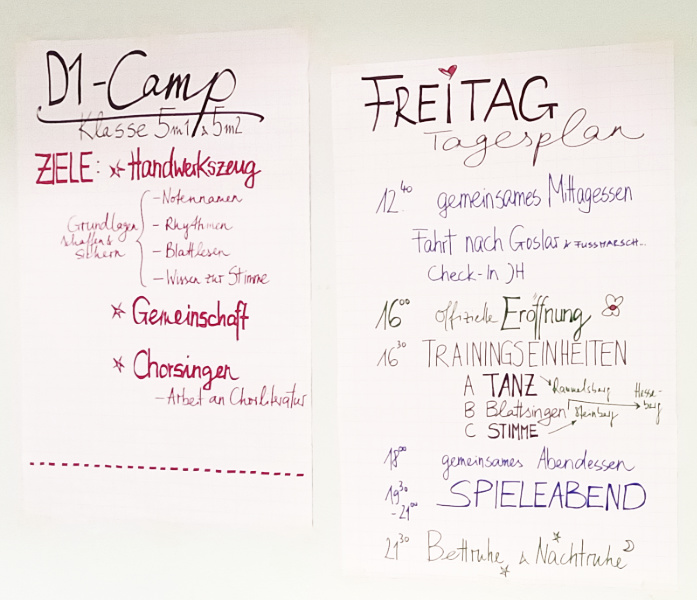 D1-Camp
Klasse 5m1 & 5m2
ZIELE: * Handwerkszeug
Grundlagen
schaffen &
sichern
- Notennamen
- Rhythmen
- Blattlesen
- Wissen zur Stimme
* Gemeinschaft
* Chorsingen
- Arbeit an Chorliteratur
FREITAG
Tagesplan
12⁴⁰ gemeinsames Mittagessen
Fahrt nach Goslar & FUSSMARSCH...
Check-In JH
16⁰⁰ offizielle Eröffnung
16³⁰ TRAININGSEINHEITEN
A TANZ Rammelsberg
B Blattsingen Steinberg
Hesse-
berg
C STIMME
18⁰⁰ gemeinsames Abendessen
19³⁰
- 21⁰⁰ SPIELEABEND
21³⁰ Bettruhe & Nachtruhe